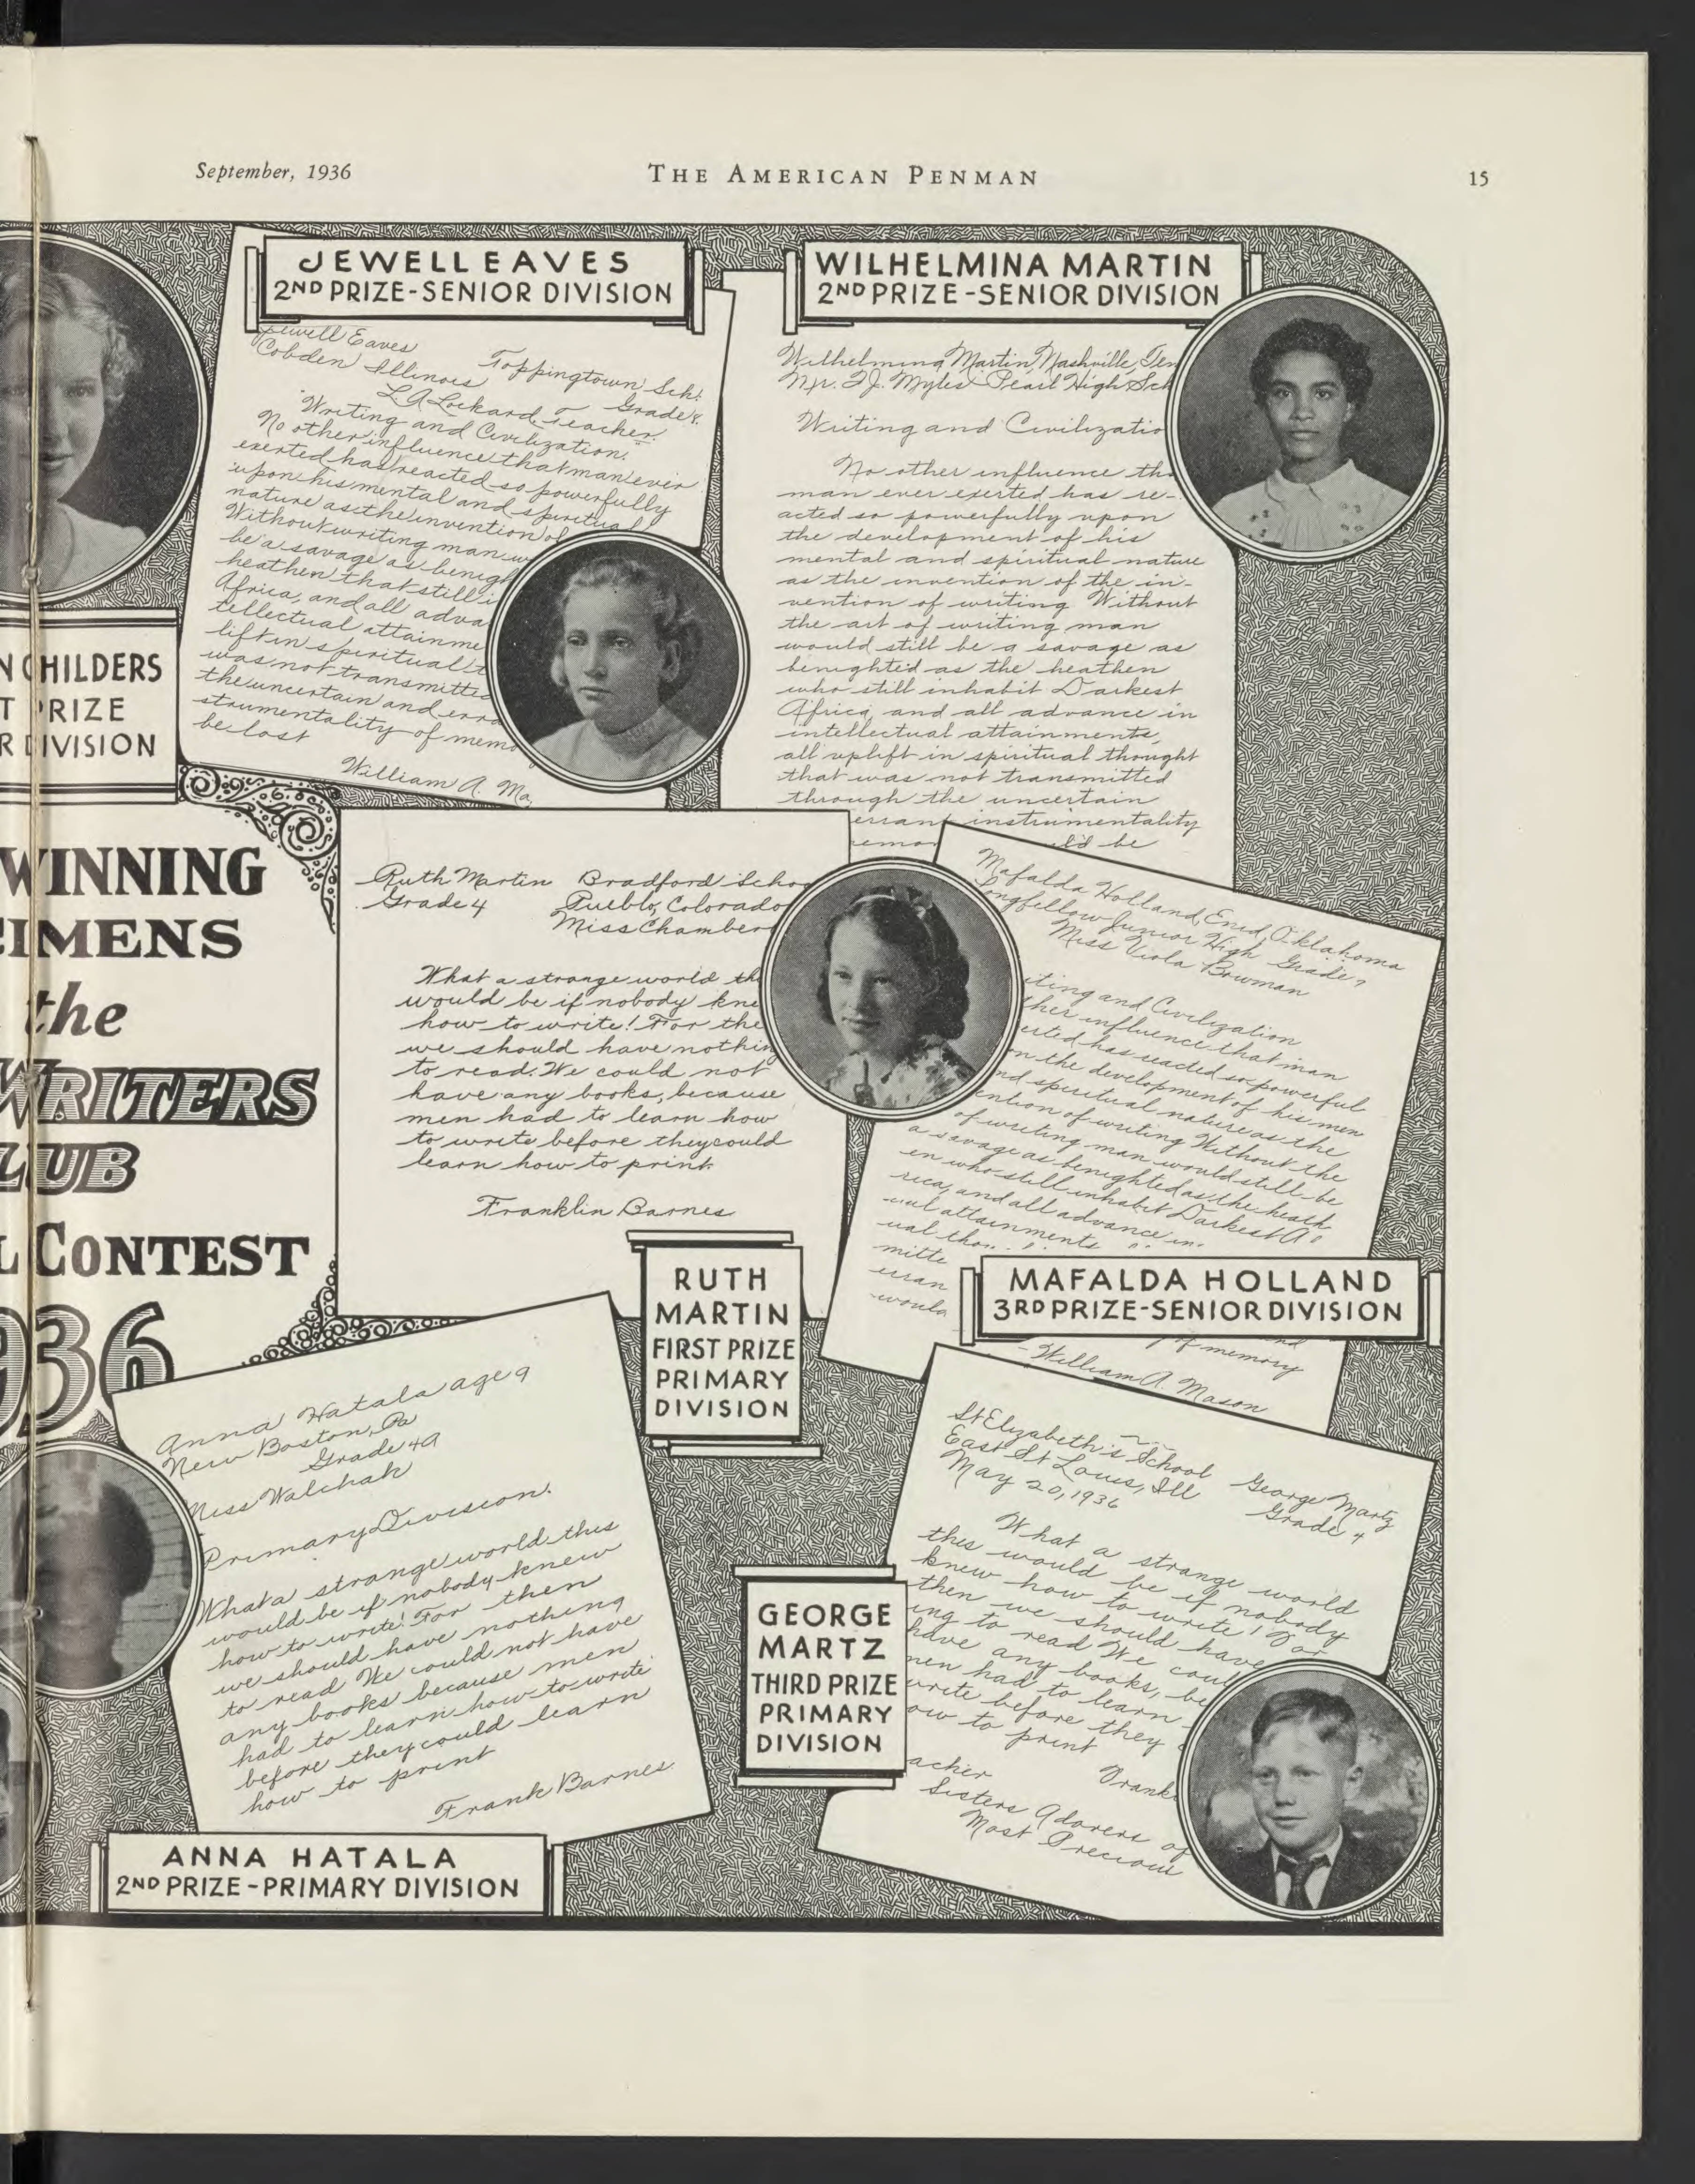 September, 1936
THE AMERICAN PENMAN
15
JEWELL EAVES
2ND PRIZE-SENIOR DIVISION
Jewell Eaves
Toppingtown Sch.
Cobden Illinois
Grade 8.
L.A. Lockard, Teacher.
Writing and Civilization.
No other influence that man ever
exerted has reacted so powerfully
upon his mental and spiritual
nature as the invention of
Without writing man w
be a savage as benigh
heathen that still i
Africa, and all adva
tellectual attainme
lift in spiritual t
was not transmitted
the uncertain and erra
strumentality of memo
be lost
William A. Ma
WILHELMINA MARTIN
2ND PRIZE-SENIOR DIVISION
Wilhelmina Martin, Nashville, Ten
Mr. F.J. Myles Pearl High Sch
Writing and Civilizatio
No other influence tha
man ever exerted has re-
acted so powerfully upon
the development of his
mental and spiritual nature
as the invention of the in-
vention of writing Without
the art of writing man
would still be a savage as
benighted as the heathen
who still inhabit Darkest
Africa and all advance in
intellectual attainments,
all uplift in spiritual thought
that was not transmitted
through the uncertain
errant instrumentality
emor ld be
N CHILDERS
T PRIZE
R DIVISION
WINNING
CIMENS
the
WRITERS
LUB
L CONTEST
936
Ruth Martin Bradford Schoo
Grade 4 Pueblo, Colorado
Miss Chamber
What a strange world th
would be if nobody kne
how to write! For the
we should have nothin
to read. We could not
have any books, because
men had to learn how
to write before they could
learn how to print.
Franklin Barnes
RUTH
MARTIN
FIRST PRIZE
PRIMARY
DIVISION
Mafalda Holland, Enid, Oklahoma
Longfellow Junior High Grade 7
Miss Viola Bowman
iting and Civilization
ther influence that man
erted has reacted so powerful
on the development of his men
nd spiritual nature as the
ention of writing Without the
of writing man would still be
a savage as benighted as the heath
en who still inhabit Darkest A
rica, and all advance in
ual attainments
ual tho
mitte
erran
would
nd
of memory
William A. Mason
MAFALDA HOLLAND
3RD PRIZE-SENIOR DIVISION
Anna Hatala age 9
New Boston, Pa
Grade 4A
Miss Walchak
Primary Division.
What a strange world this
would be if nobody knew
how to write! For then
we should have nothing
to read We could not have
any books because men
had to learn how to write
before they could learn
how to print
Frank Barnes
ANNA HATALA
2ND PRIZE-PRIMARY DIVISION
St Elizabeth's School George Martz
East St Louis, Ill Grade 4
May 20, 1936
What a strange world
this would be if nobody
knew how to write! For
then we should have
ing to read We coul
have any books, be
men had to learn
write before they
ow to print
Frank
acher
Sisters Adorers of
Most Precious
GEORGE
MARTZ
THIRD PRIZE
PRIMARY
DIVISION